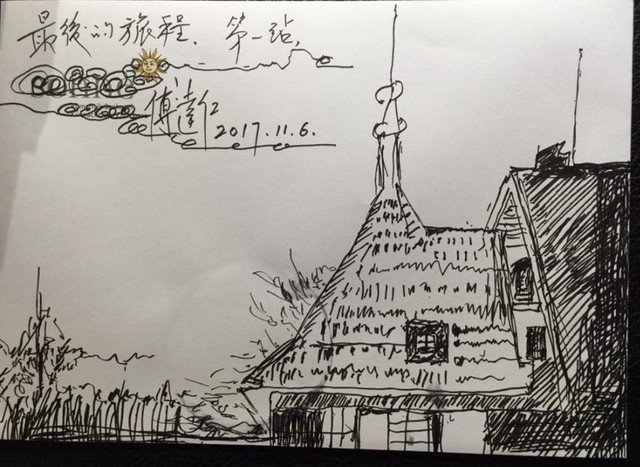 最後的旅程、第一站,
傅達仁 2017.11.6.